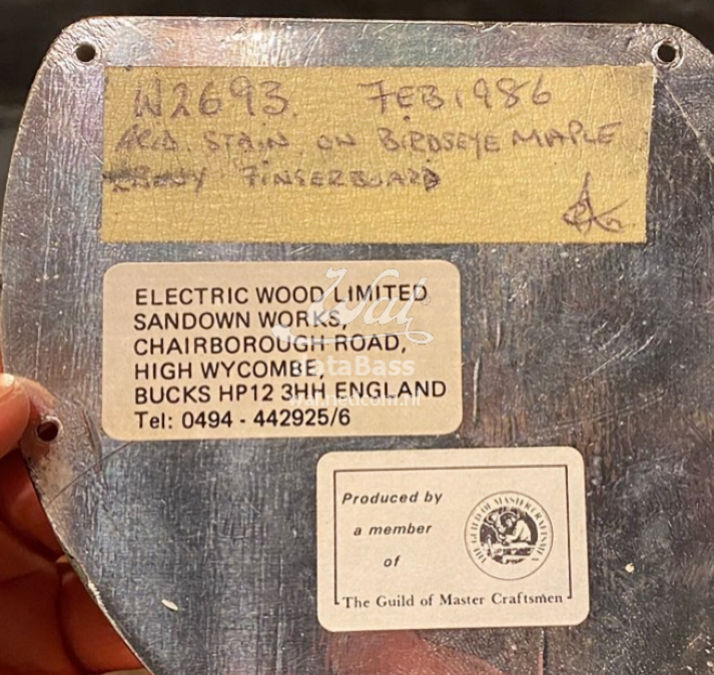 W2693. FEB 1986
ACID. STAIN. ON BIRDSEYE MAPLE
EBONY FINGERBOARD
ELECTRIC WOOD LIMITED
SANDOWN WORKS,
CHAIRBOROUGH ROAD,
HIGH WYCOMBE,
BUCKS HP12 3HH ENGLAND
Tel: 0494 - 442925/6
Wal
DataBass
Produced by
a member
of
The Guild of Master Craftsmen
THE GUILD OF MASTER CRAFTSMEN